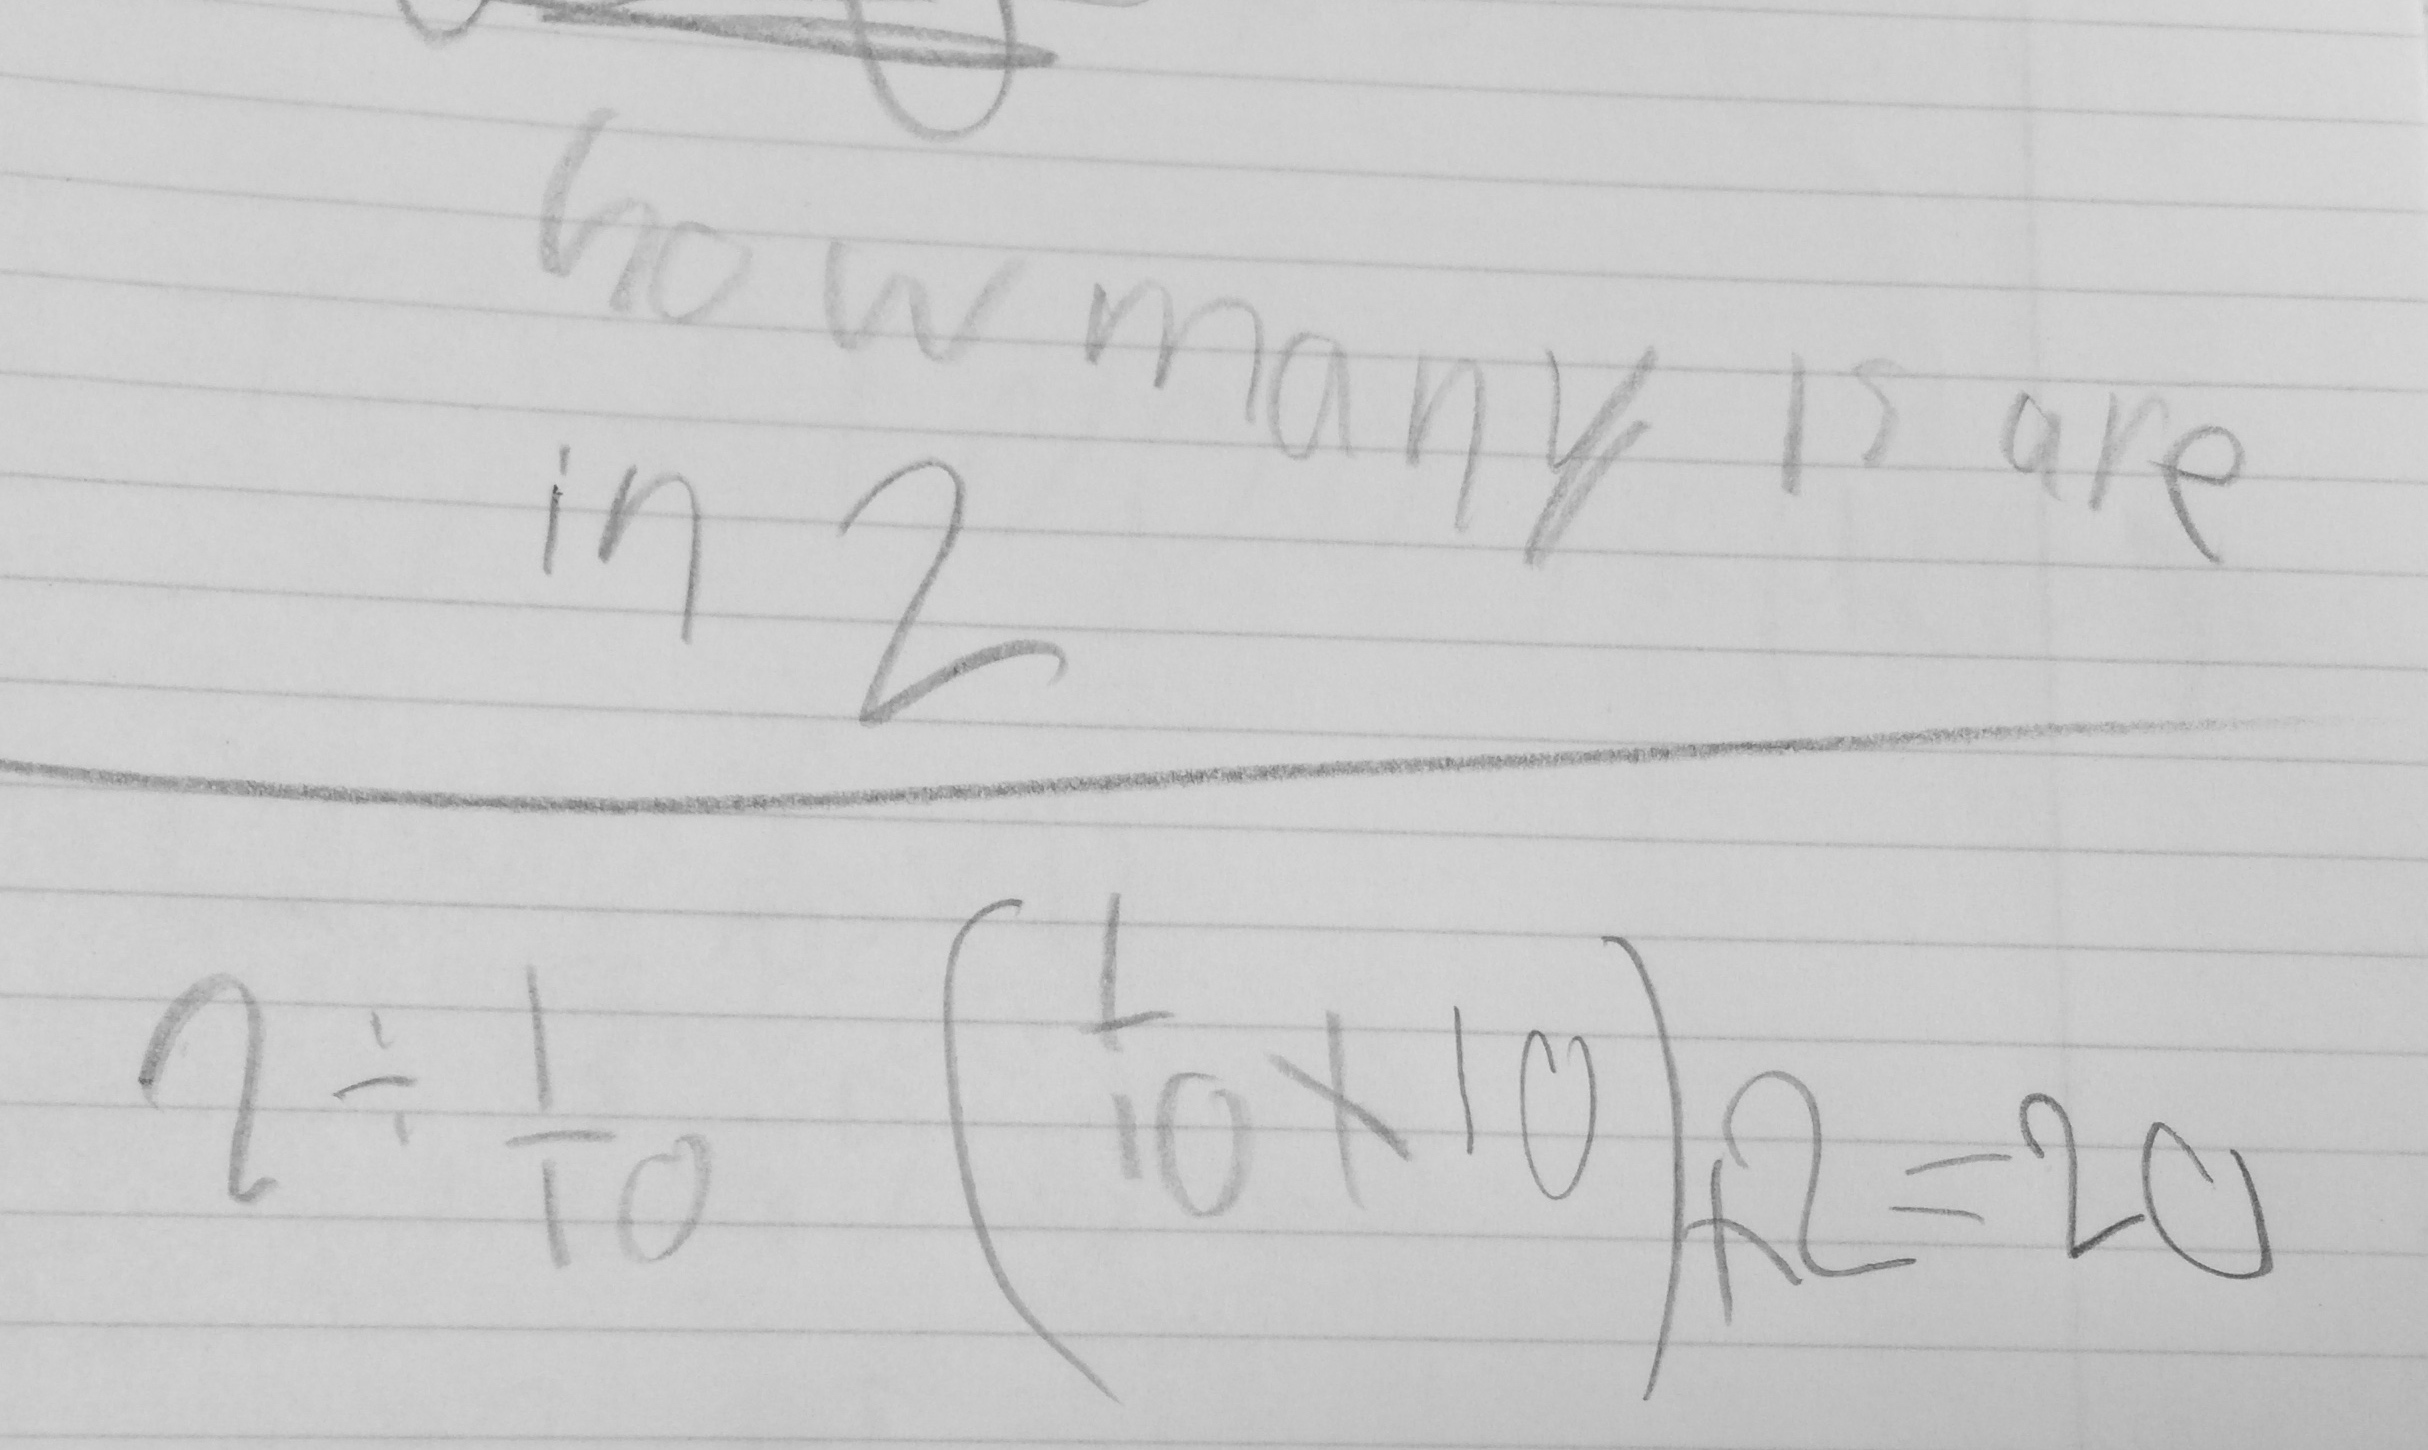 how many 1s are
in 2
2 ÷ 1/10 (1/10 × 10) × 2 = 20